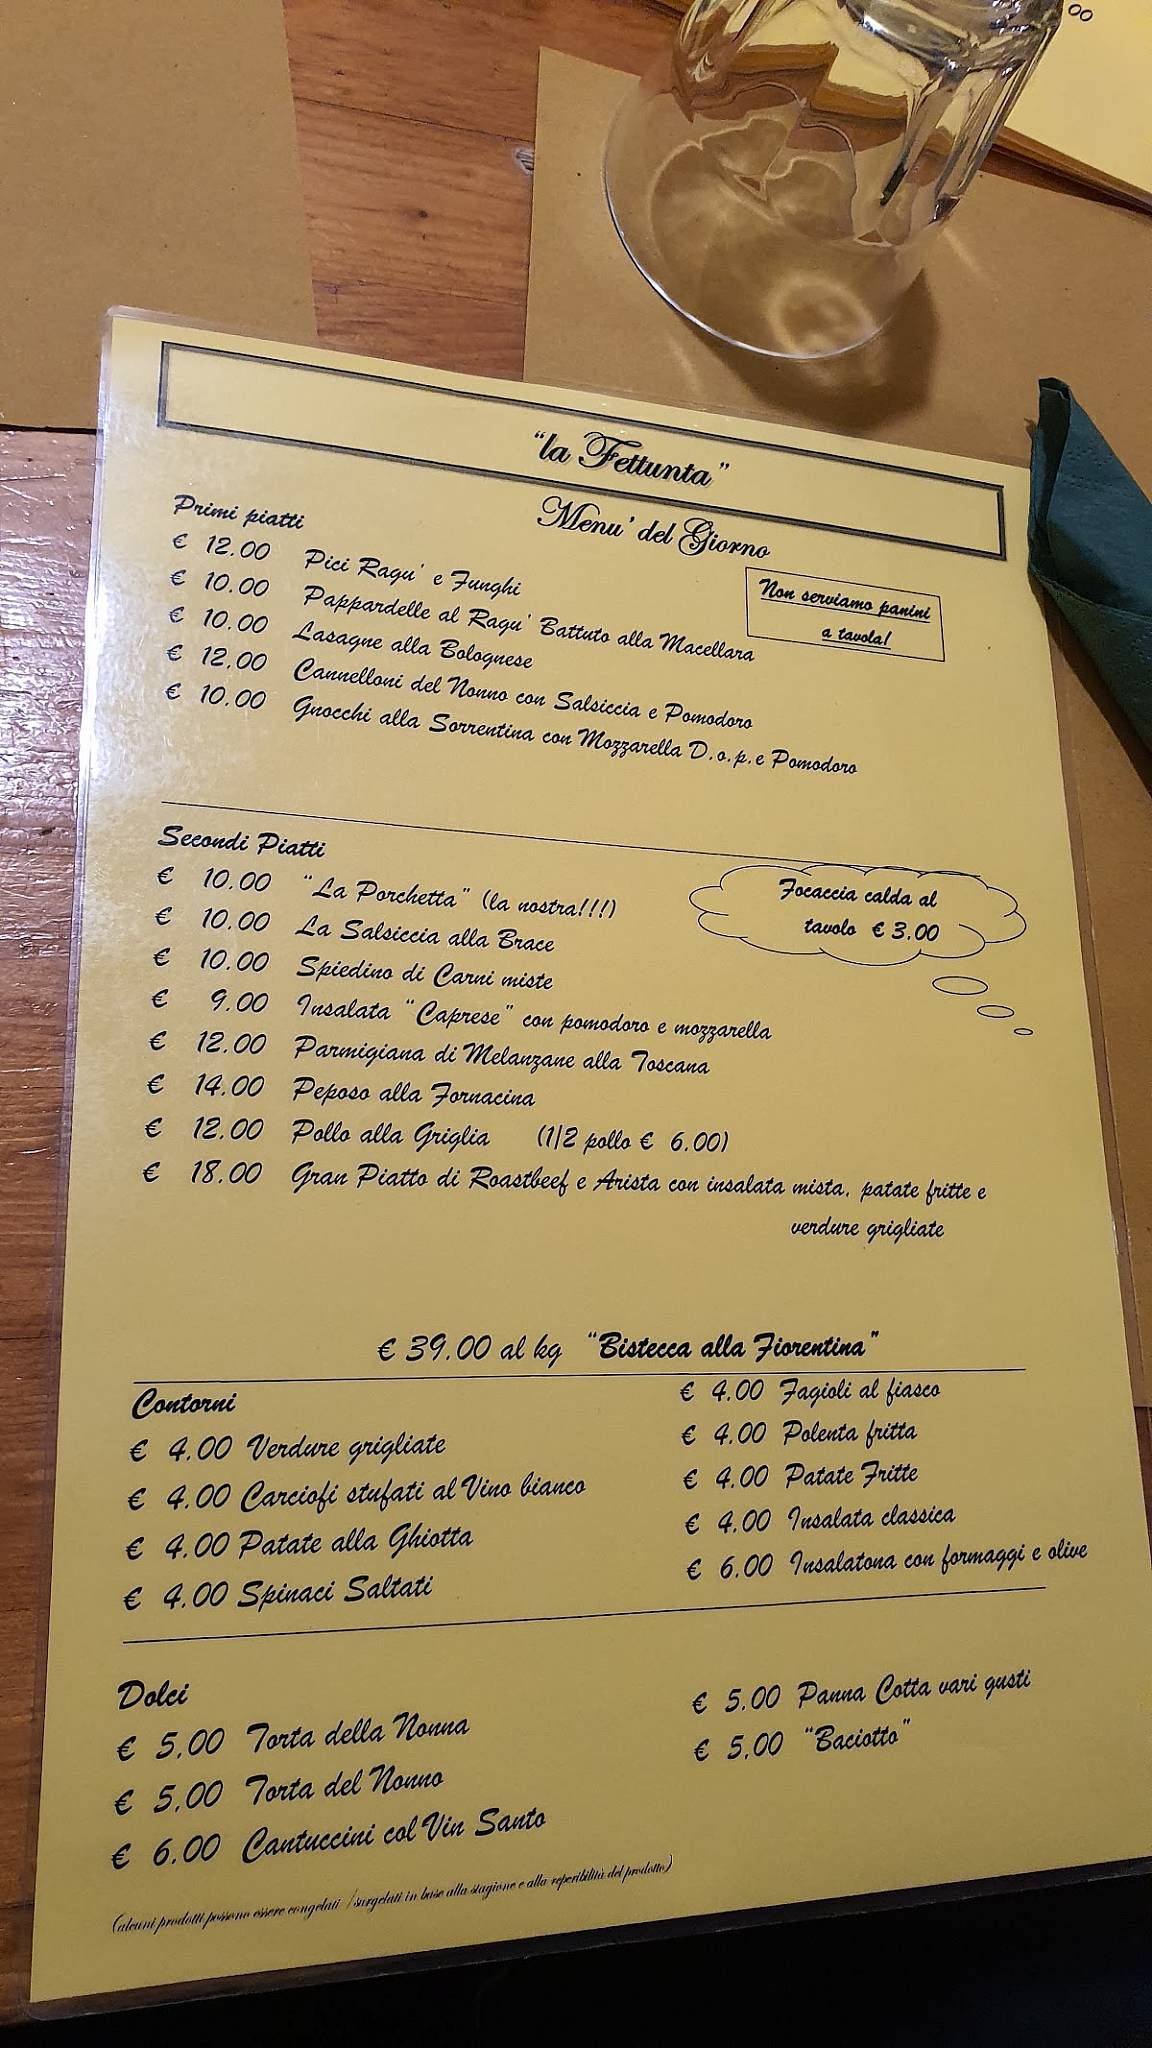 "la Fettunta"
Menu' del Giorno
Primi piatti
€ 12.00 Pici Ragu' e Funghi
€ 10.00 Pappardelle al Ragu' Battuto alla Macellara
€ 10.00 Lasagne alla Bolognese
€ 12.00 Cannelloni del Nonno con Salsiccia e Pomodoro
€ 10.00 Gnocchi alla Sorrentina con Mozzarella D.o.p.e Pomodoro
Non serviamo panini
a tavola!
Secondi Piatti
€ 10.00 "La Porchetta" (la nostra!!!)
€ 10.00 La Salsiccia alla Brace
€ 10.00 Spiedino di Carni miste
€ 9.00 Insalata "Caprese" con pomodoro e mozzarella
€ 12.00 Parmigiana di Melanzane alla Toscana
€ 14.00 Peposo alla Fornacina
€ 12.00 Pollo alla Griglia (1/2 pollo € 6.00)
€ 18.00 Gran Piatto di Roastbeef e Arista con insalata mista, patate fritte e
verdure grigliate
Focaccia calda al
tavolo € 3.00
€ 39.00 al kg "Bistecca alla Fiorentina"
Contorni
€ 4.00 Verdure grigliate
€ 4.00 Carciofi stufati al Vino bianco
€ 4.00 Patate alla Ghiotta
€ 4.00 Spinaci Saltati
€ 4.00 Fagioli al fiasco
€ 4.00 Polenta fritta
€ 4.00 Patate Fritte
€ 4.00 Insalata classica
€ 6.00 Insalatona con formaggi e olive
Dolci
€ 5.00 Torta della Nonna
€ 5.00 Torta del Nonno
€ 6.00 Cantuccini col Vin Santo
€ 5.00 Panna Cotta vari gusti
€ 5.00 "Baciotto"
(alcuni prodotti possono essere congelati /surgelati in base alla stagione e alla reperibilità del prodotto)